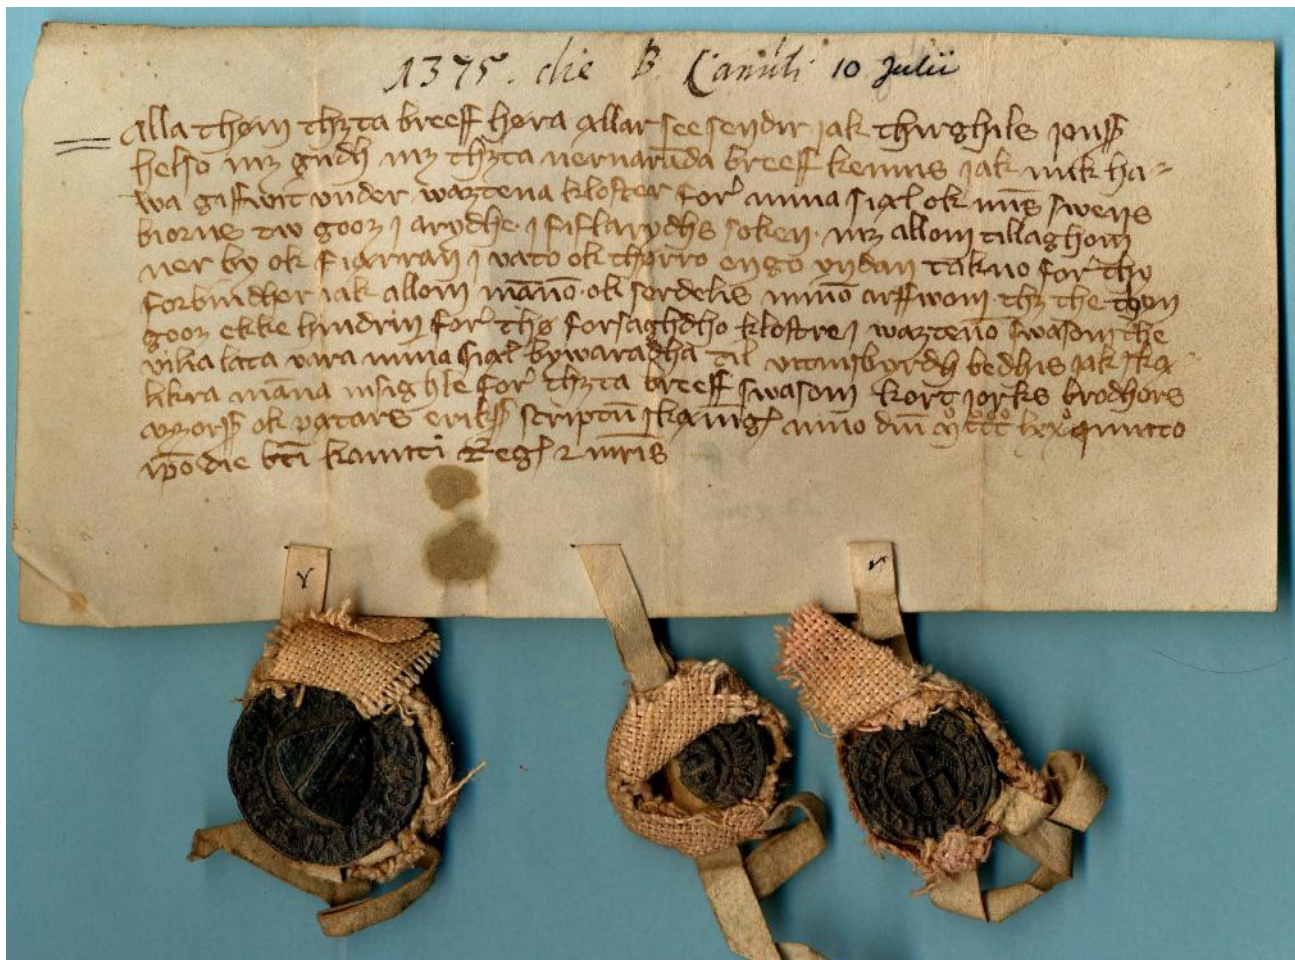 1375. die B. Canuti 10 Julii
Alla thøm thzta breeff høra Allar see sendir jak thirghils jonss
helso mz gudh mz thzta nerwarūda breeff kennis jak mik ha=
wa giffwit vnder waztena kloster for mina siæl ok mīs swens
biorns tw gooz j arydhe j fiflarydhs soken mz allom tillaghom
ner by ok fiarran j vato ok thørro engo vndan takno for thy
forbindher jak allom māno ok serdelis mino arffwom thz the thøn
gooz ekke hindrin for thø forsaghdho klostre j wazteno swasom the
vilia lata vara mina siæl bywaradha til vitnisbyrdh bedhis jak
likra māna insighle for thzta breeff swasom kort jorks brodhors
ok pætars erikss scriptū anno dnī mºcccº lxxº quinto
ipo die bti kanuti Reg 2 mris